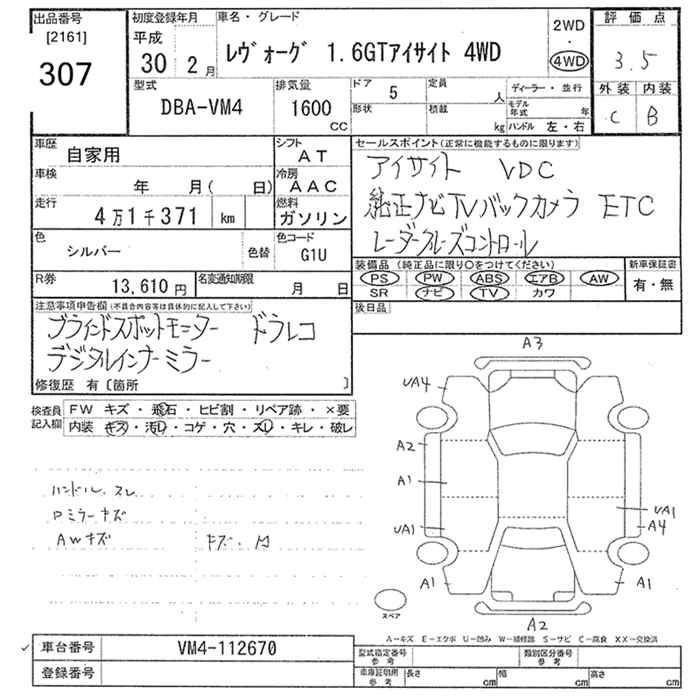 出品番号
[2161]
307
初度登録年月
平成
30 2月
車名・グレード
レヴォーグ 1.6GTアイサイト 4WD
2WD
・
4WD
評価点
3.5
外装 内装
C B
型式
DBA-VM4
排気量
1600
CC
ドア 5
定員 人
形状
積載 kg
ディーラー・並行
モデル年式 年
ハンドル 左・右
車歴
自家用
シフト
AT
車検
年 月( 日)
冷房
AAC
走行
4万1千371 km
燃料
ガソリン
色
シルバー
色替
色コード
G1U
R券
13,610円
名変通知期限
月 日
セールスポイント(正常に機能するものに限ります)
アイサイト VDC
純正ナビTVバックカメラ ETC
レーダークルーズコントロール
装備品 (純正品に限り○をつけてください)
PS PW ABS エアB AW
SR ナビ TV カワ
新車保証書
有・無
後日品
注意事項申告欄(不具合内容等は具体的に記入して下さい)
ブラインドスポットモニター ドラレコ
デジタルインナーミラー
修復歴 有〔箇所 〕
検査員記入欄
FW キズ・飛石・ヒビ割・リペア跡・×要
内装 キズ・汚レ・コゲ・穴・スレ・キレ・破レ
ハンドル スレ
Pミラーキズ
AWキズ キズ・凹
A3
UA4
A2
A1
UA1
UA1
A4
A1
A1
A2
スペア
A-キズ E-エクボ U-凹み W-補修跡 S-サビ C-腐食 XX-交換済
車台番号
VM4-112670
登録番号
型式指定番号
参考
類別区分番号
参考
車庫証明用
参考
長さ cm
幅 cm
高さ cm